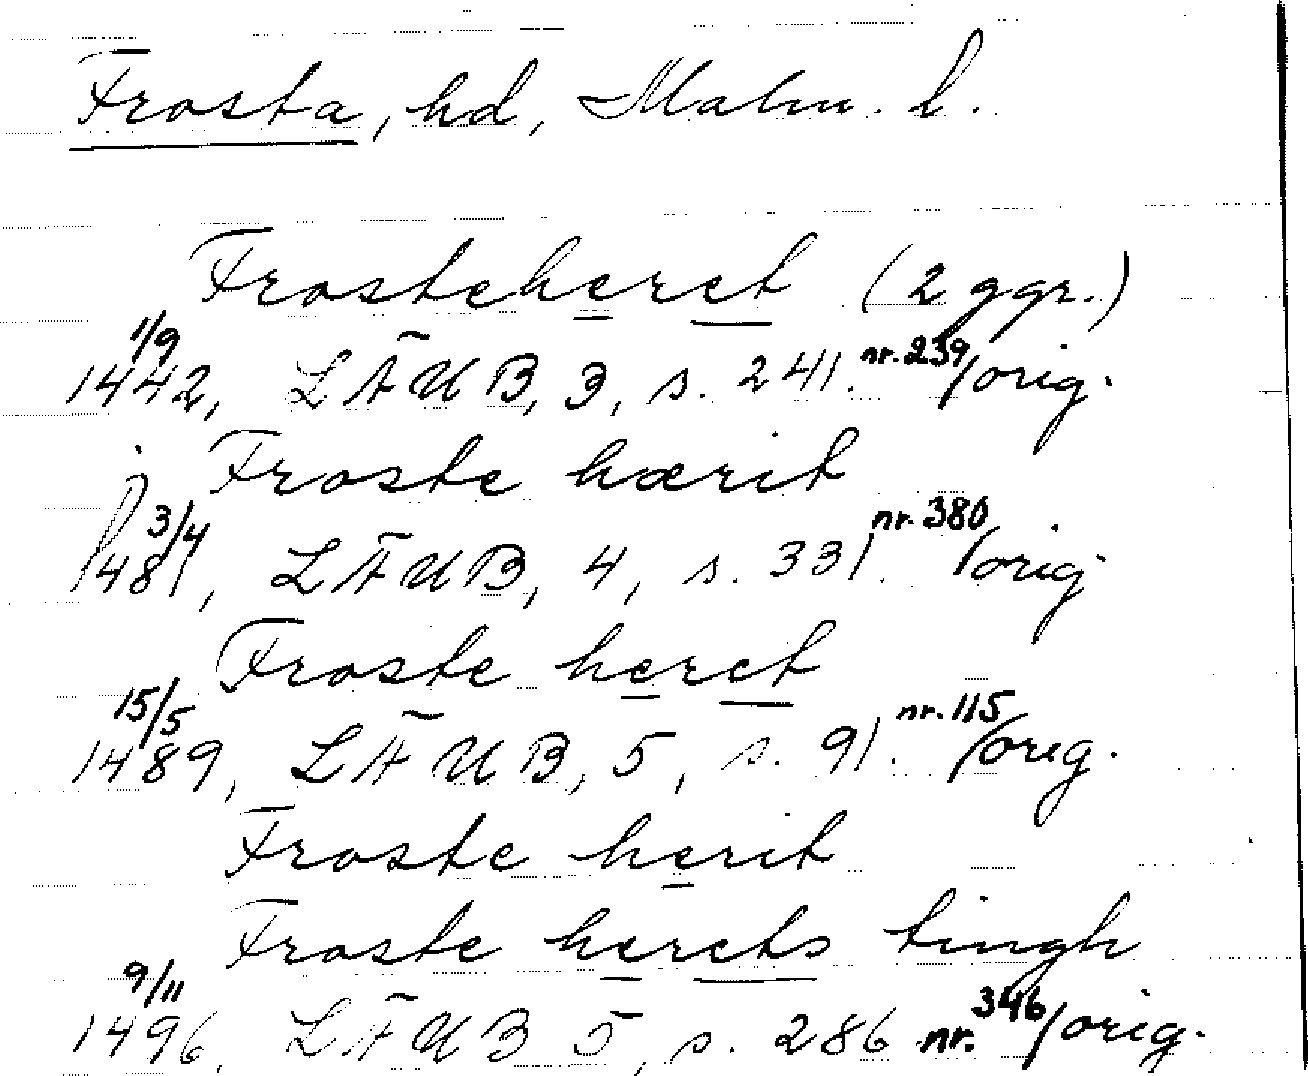 Frosta, hd, Malm. l.
Frosteheret (2 ggr.)
1/9 1442, LÄUB, 3, s. 241. nr. 239/orig.
Froste hærit
3/4 1481, LÄUB, 4, s. 331. nr. 380/orig
Froste heret
15/5 1489, LÄUB, 5, s. 91. nr. 115/orig.
Froste herit
Froste herets tingh
9/11 1496, LÄUB 5, s. 286 nr. 346/orig.